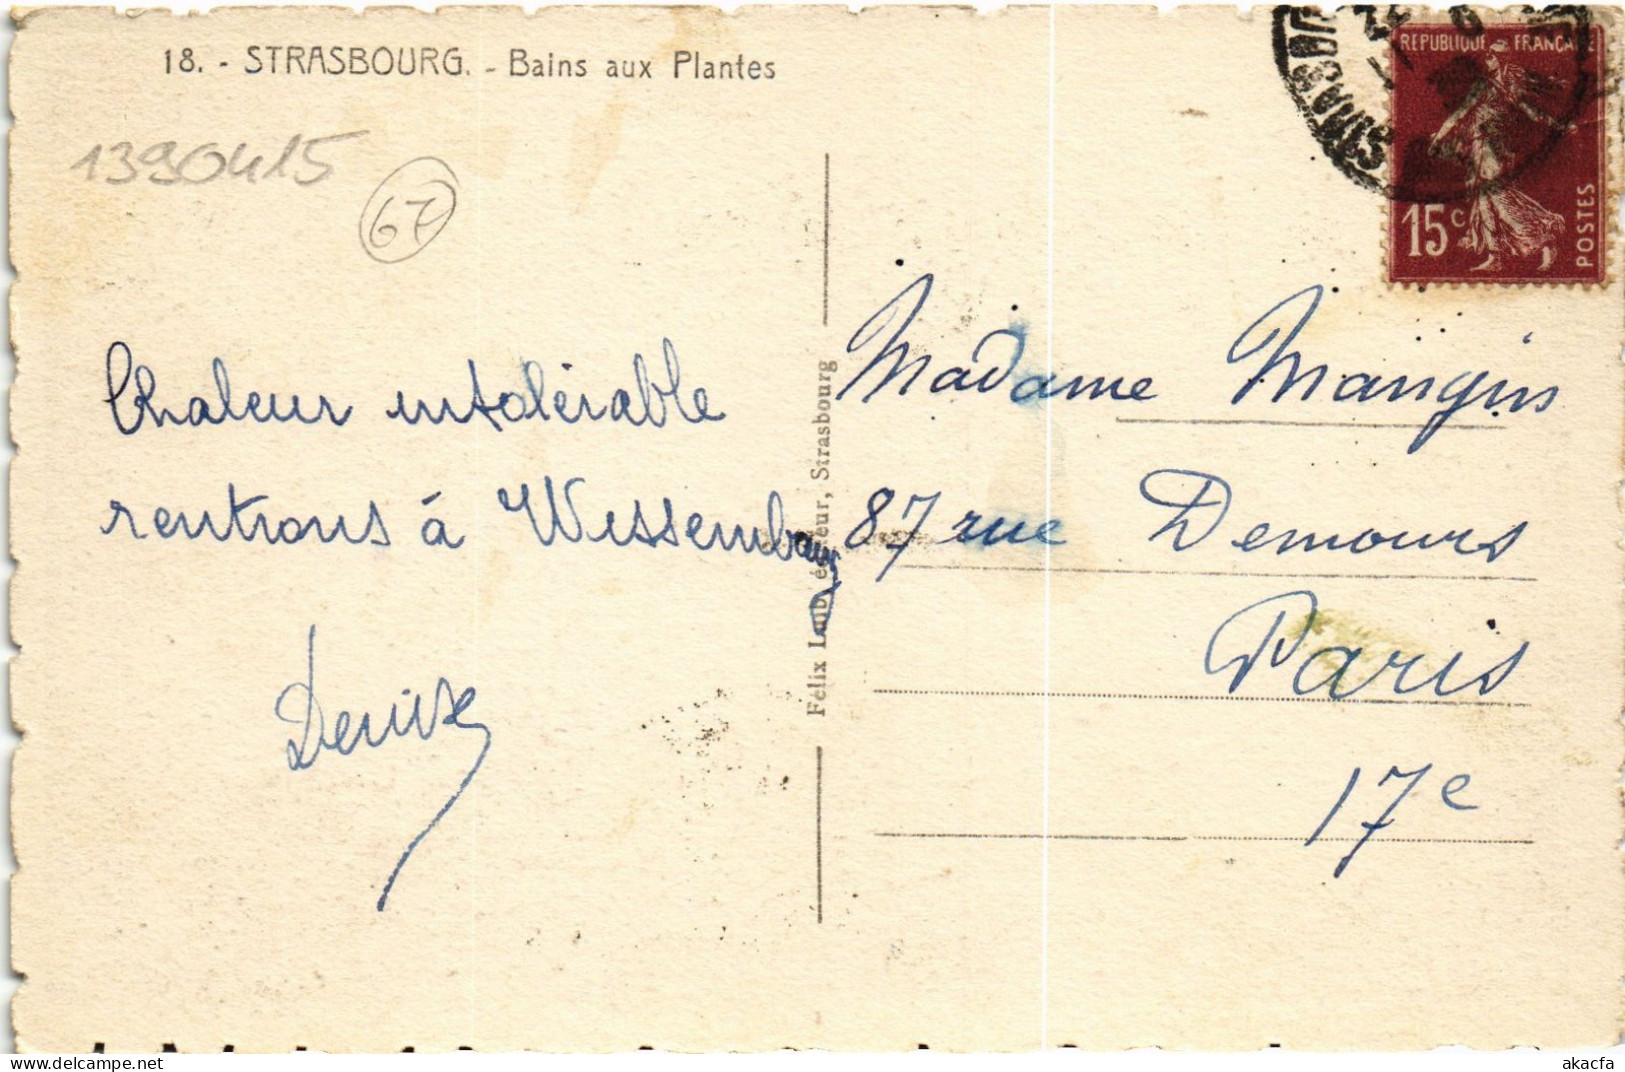 18. - STRASBOURG. - Bains aux Plantes
1390415
67
Chaleur intolérable
rentrons à Wissembourg
Denise
Félix Luib, éditeur, Strasbourg
STRASBOURG
REPUBLIQUE FRANÇAISE
15c
POSTES
Madame Mangin
87 rue Demours
Paris
17e
akacfa